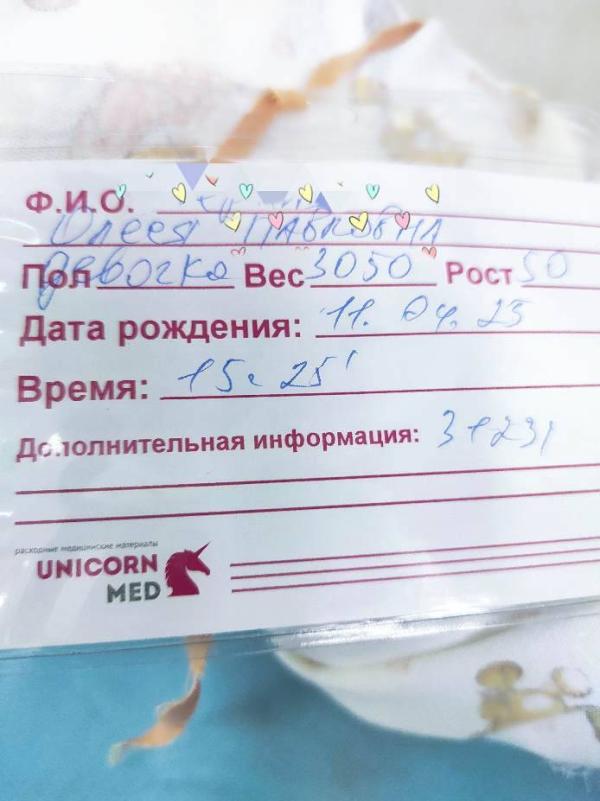 Ф.И.О.
Олеся Павловна
Пол девочка Вес 3050 Рост 50
Дата рождения: 11. 04. 23
Время: 15ч 25'
Дополнительная информация:
расходные медицинские материалы
UNICORN
MED